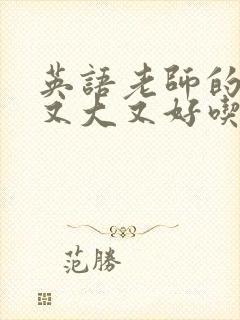 英語老師的
又大又好喫
范勝